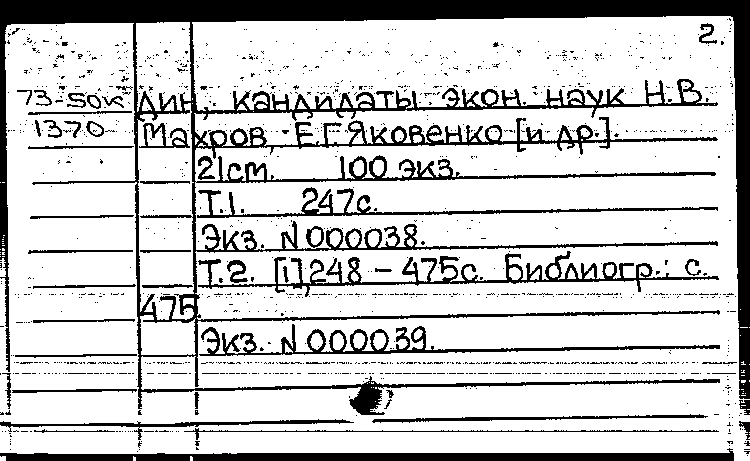 2.
73-50к дин, кандидаты экон. наук Н.В.
1370 Махров, Е.Г. Яковенко [и др.].
21см. 100 экз.
Т.1. 247с.
Экз. N 000038.
Т.2. [1], 248 – 475с. Библиогр.: с.
475.
Экз. N 000039.